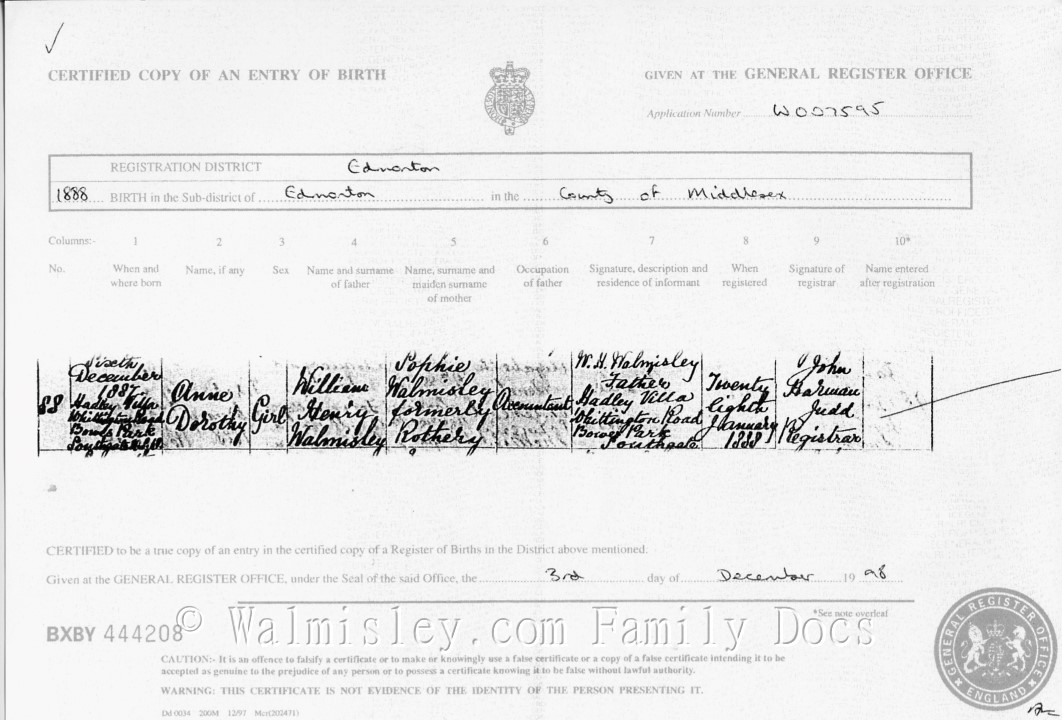 CERTIFIED COPY OF AN ENTRY OF BIRTH
GIVEN AT THE GENERAL REGISTER OFFICE
Application Number W007595
REGISTRATION DISTRICT Edmonton
1888 BIRTH in the Sub-district of Edmonton in the County of Middlesex
Columns:- 1 2 3 4 5 6 7 8 9 10*
No. When and where born Name, if any Sex Name and surname of father Name, surname and maiden surname of mother Occupation of father Signature, description and residence of informant When registered Signature of registrar Name entered after registration
88
Sixth
December
1887
Hadley Villa
Whittington Road
Bowes Park
Southgate
Anne
Dorothy
Girl
William
Henry
Walmisley
Sophie
Walmisley
formerly
Rothery
Accountant
W. H. Walmisley
Father
Hadley Villa
Whittington Road
Bowes Park
Southgate
Twenty
eighth
January
1888
John
Harman
Judd
Registrar
CERTIFIED to be a true copy of an entry in the certified copy of a Register of Births in the District above mentioned.
Given at the GENERAL REGISTER OFFICE, under the Seal of the said Office, the 3rd day of December 19 98
*See note overleaf
BXBY 444208
© Walmisley.com Family Docs
CAUTION:- It is an offence to falsify a certificate or to make or knowingly use a false certificate or a copy of a false certificate intending it to be
accepted as genuine to the prejudice of any person or to possess a certificate knowing it to be false without lawful authority.
WARNING: THIS CERTIFICATE IS NOT EVIDENCE OF THE IDENTITY OF THE PERSON PRESENTING IT.
Dd 0034 200M 12/97 Mcr(202471)
GENERAL REGISTER OFFICE
ENGLAND